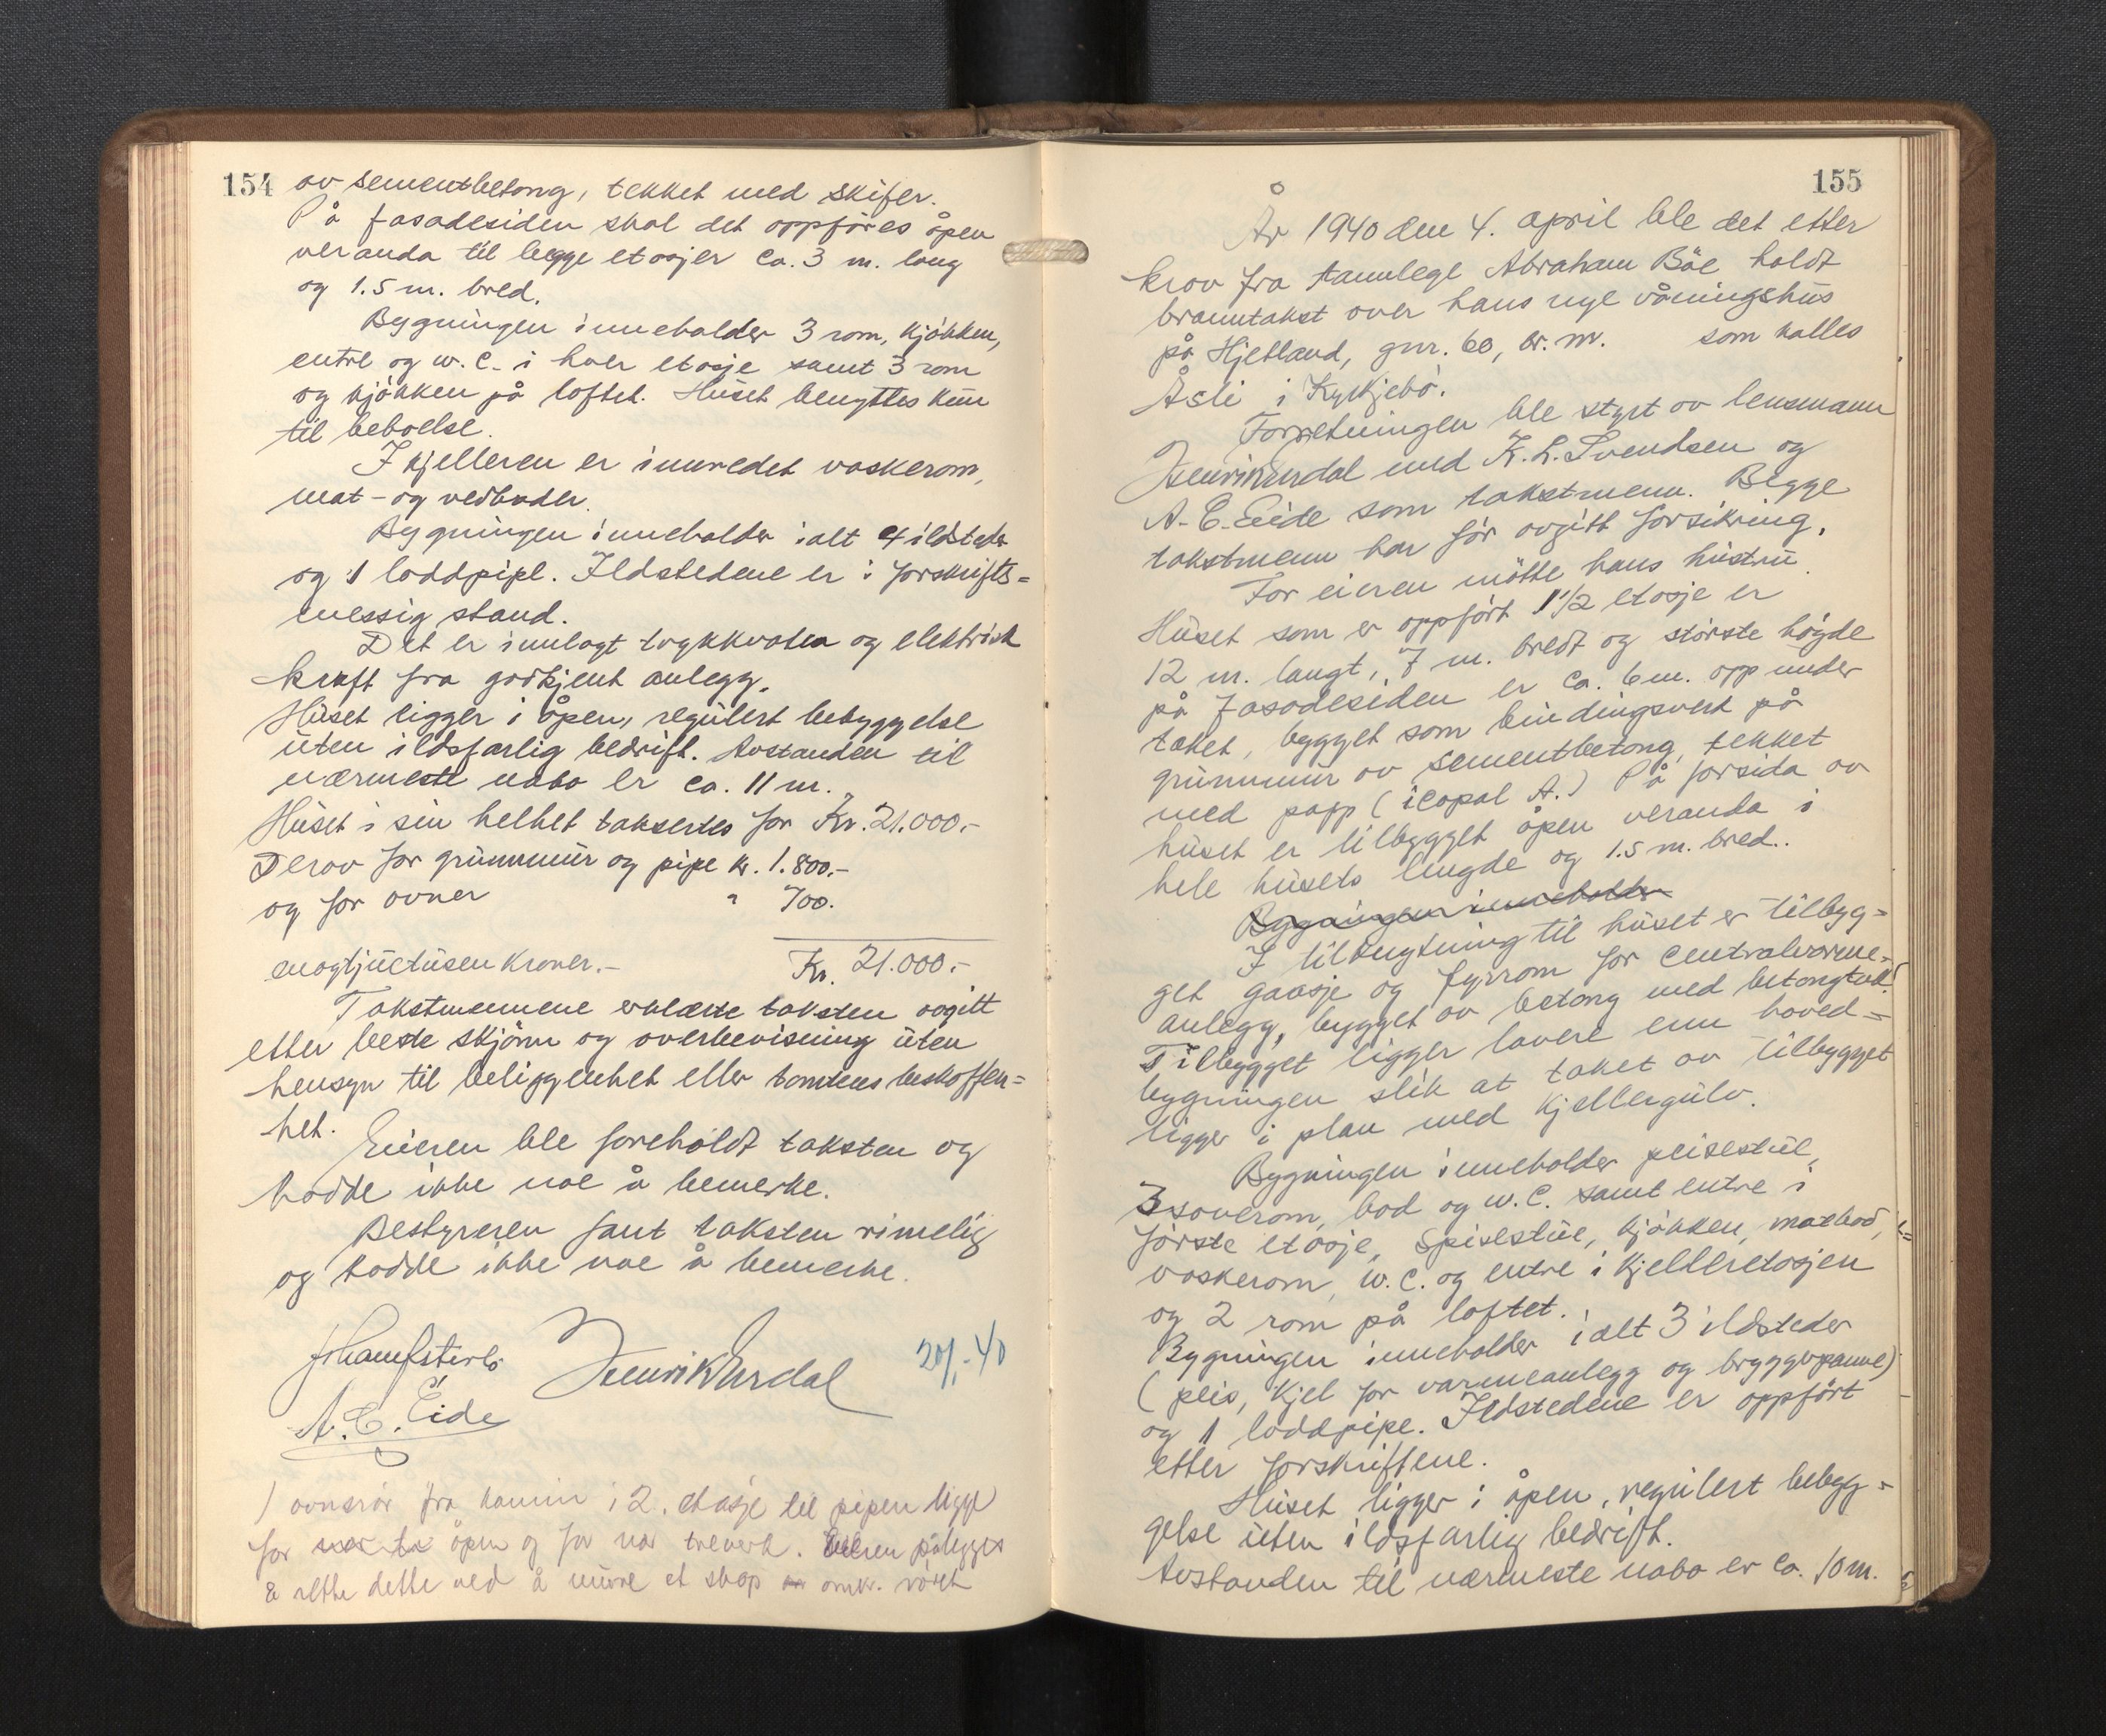 154
av sementbetong, tekket med skifer.
På fasadesiden skal det oppföres åpen
veranda til begge etasjer ca. 3 m. lang
og 1.5 m. bred.
Bygningen inneholder 3 rom, kjökken,
entre og w.c. i hver etasje samt 3 rom
og kjökken på loftet. Huset benyttes kun
til beboelse.
I kjelleren er innredet vaskerom,
mat- og vedboder.
Bygningen inneholder ialt 4 ildsteder
og 1 loddpipe. Ildstedene er i forskrifts=
messig stand.
Det er innlagt trykkvatn og elektrisk
kraft fra godkjent anlegg.
Huset ligger i åpen, regulert bebyggelse
uten ildsfarlig bedrift. Avstanden til
nærmeste nabo er ca. 11 m.
Huset i sin helhet takseres for Kr. 21.000.-
Derav for grunnmur og pipe kr. 1.800.-
og for ovner " 700.
enogtjuetusen kroner.- Kr. 21.000.-
Takstmennene erklærte taksten avgitt
etter beste skjönn og overbevisning uten
hensyn til beliggenhet eller tomtens beskaffen=
het.
Eieren ble foreholdt taksten og
hadde ikke noe å bemerke.
Bestyreren fant taksten rimelig
og hadde ikke noe å bemerke.
Henrik Hersdal 20/.-40
A. E. Eide
) ovnsrör fra kamin i 2. etasje til pipen ligger
for åpen og for nær treverk. Eieren pålegges
å rette dette ved å mure et skap omkr. röret
155
År 1940 den 4. april ble det etter
krav fra tannlege Abraham Böe holdt
branntakst over hans nye våningshus
på Hjetland, gnr. 60, br. nr. som kalles
Åsli i Kyrkjebö.
Forretningen ble styrt av lensmann
Henrik Hersdal med K. L. Svendsen og
A. E. Eide som takstmenn. Begge
takstmenn har för avgitt forsikring.
For eieren mötte hans hustru.
Huset som er oppfört 1 1/2 etasje er
12 m. langt, 7 m. bredt og störste högde
på fasadesiden er ca. 6 m. opp under
taket, bygget som bindingsverk på
grunnmur av sementbetong, tekket
med papp (icopal A.) På forsida av
huset er tilbygget åpen veranda i
hele husets lengde og 1.5 m. bred..
Bygningen inneholder
I tilknytning til huset er tilbyg=
get garasje og fyrrom for centralvarme-
anlegg, bygget av betong med betongtak.
Tilbygget ligger lavere enn hoved=
bygningen slik at taket av tilbygget
ligger i plan med kjellergulv.
Bygningen inneholder peisestue,
3 soverom, bod og w.c. samt entre i
förste etasje, Spisestue, kjökken, matbod,
vaskerom, w.c. og entre i kjelleretasjen
og 2 rom på loftet.
Bygningen inneholder ialt 3 ildsteder
(peis, kjel for varmeanlegg og bryggepanne)
og 1 loddpipe. Ildstedene er oppfört
etter forskriftene.
Huset ligger i åpen, regulert bebyg=
gelse uten ildsfarlig bedrift.
Avstanden til nærmeste nabo er ca. 10 m.